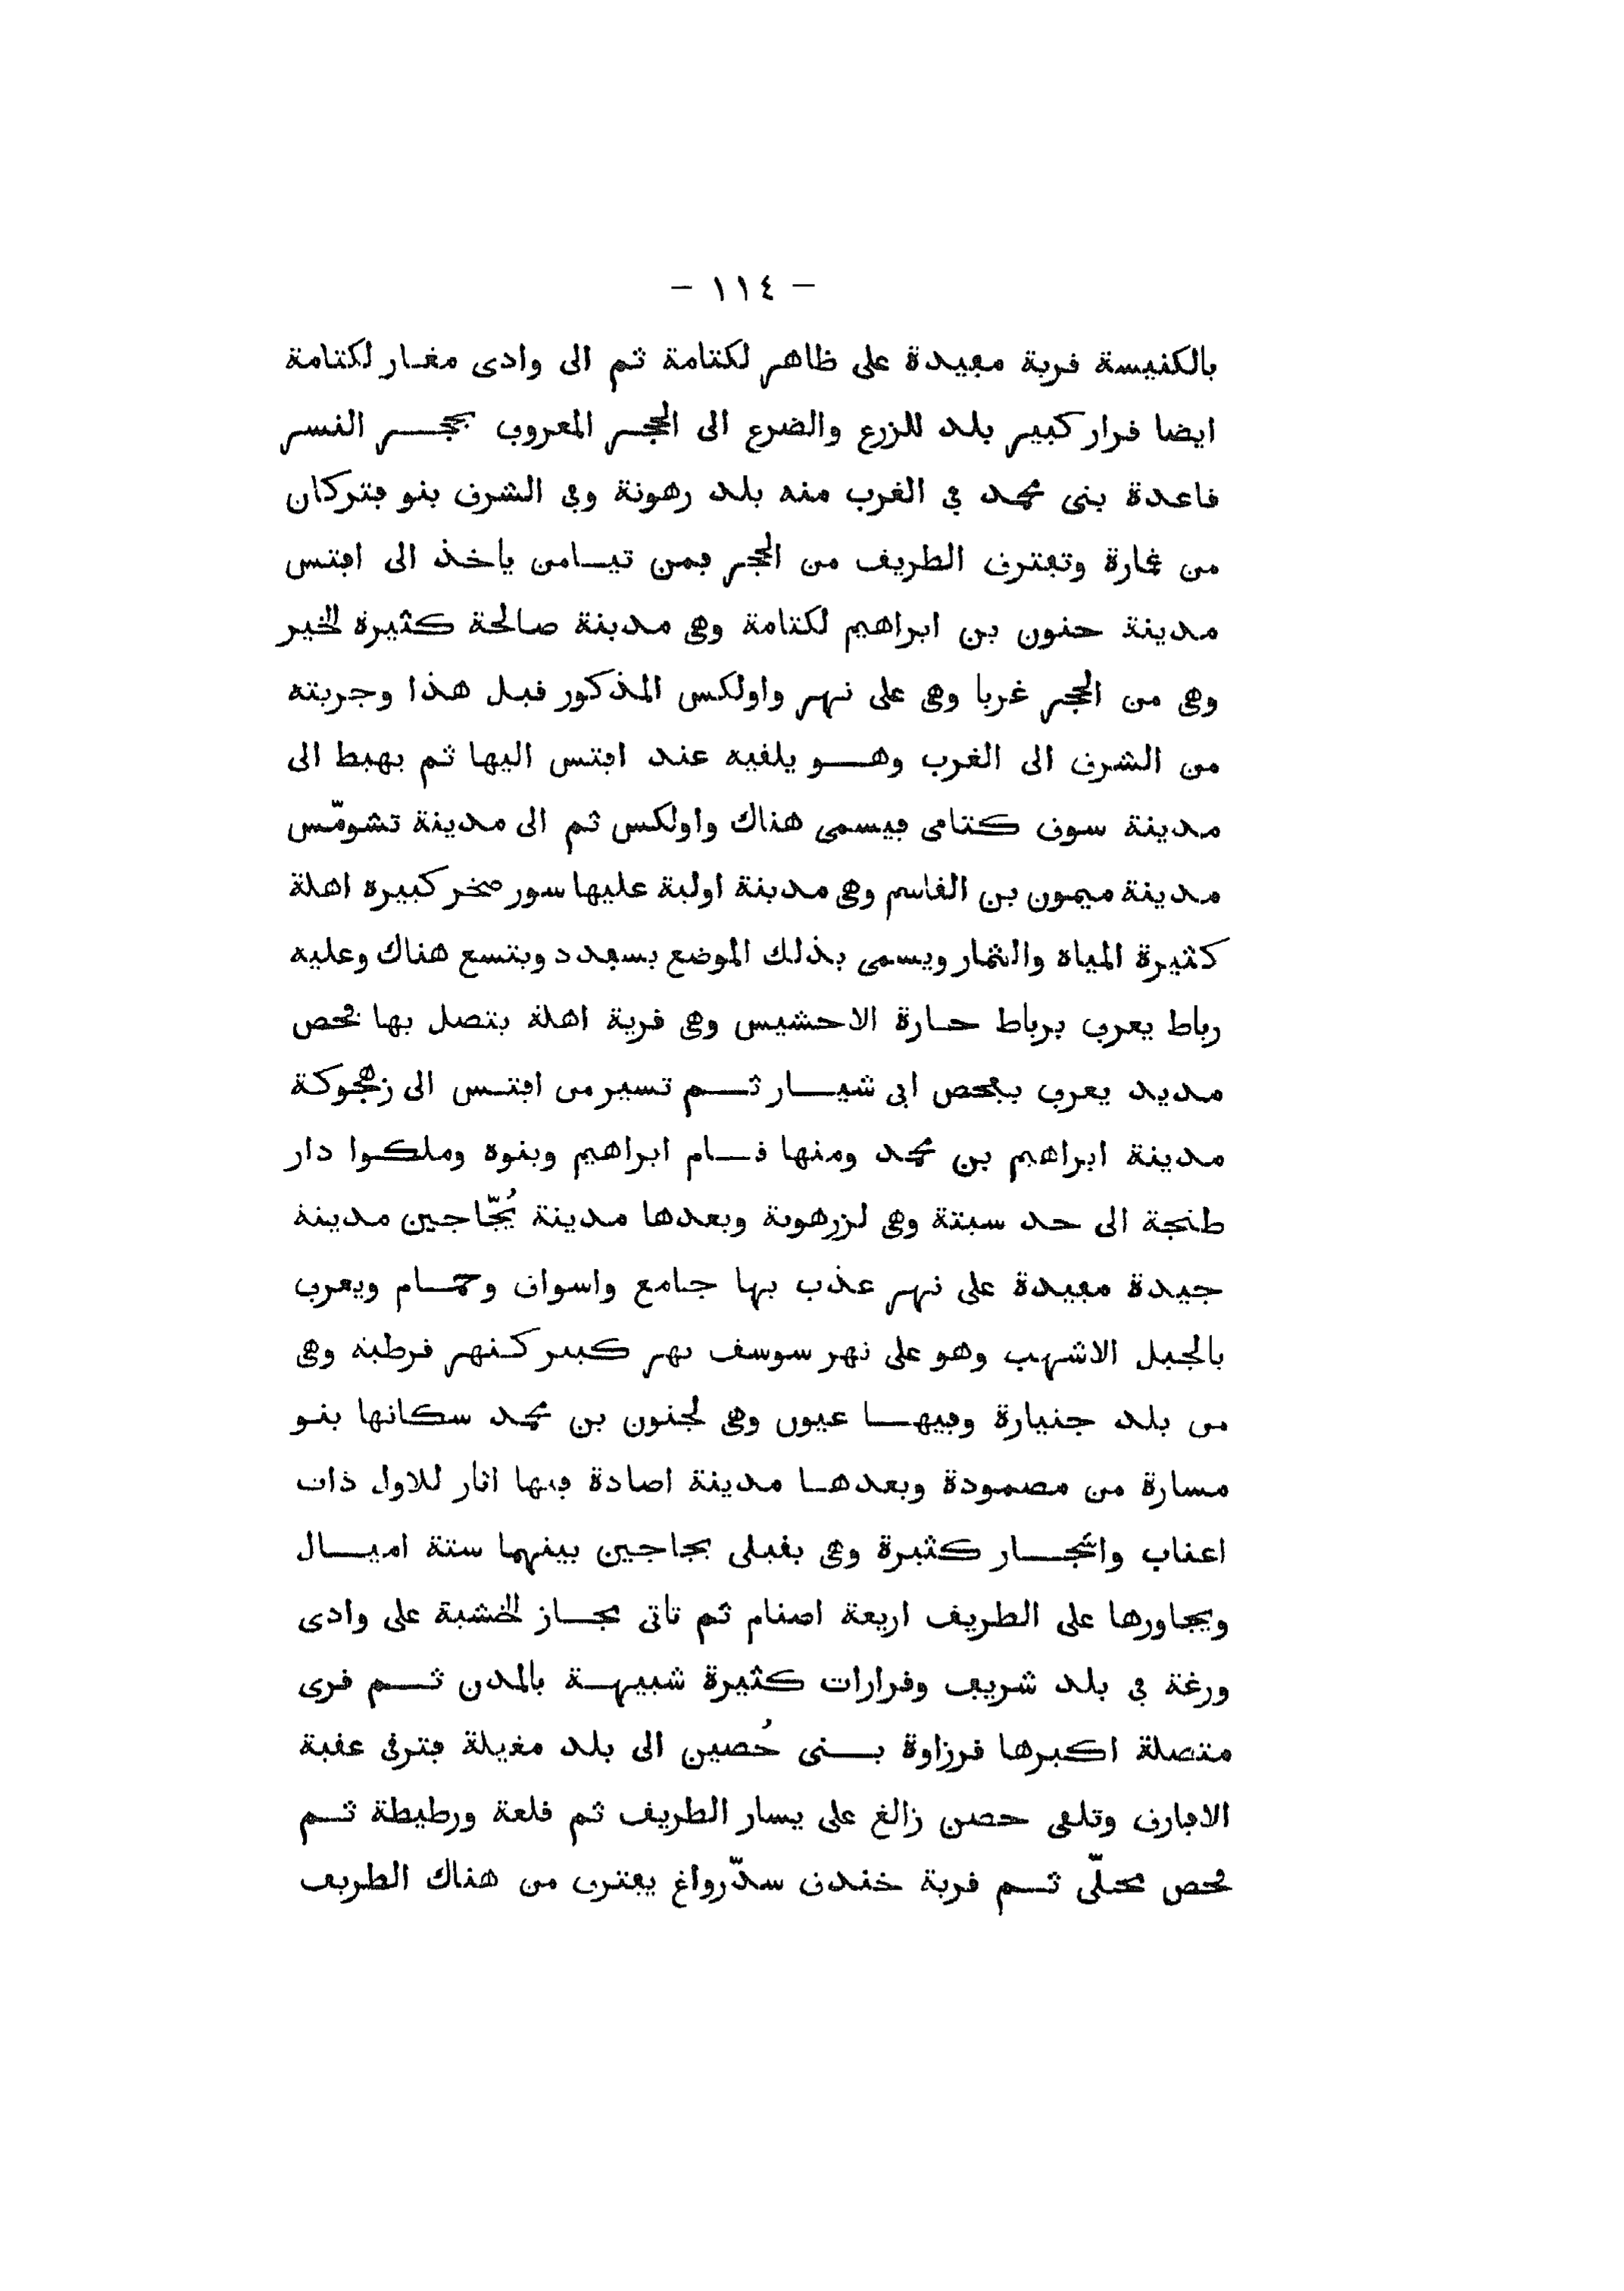 – ١١٤ –
بالكنيسة قرية مفيدة على ظاهر لكتامة ثم الى وادى مغار لكتامة
ايضا قرار كبير بلد للزرع والضرع الى الحجر المعروف بحجر النسر
قاعدة بنى محمد في الغرب منه بلد رهونة وفي الشرق بنو فتركان
من غمارة وتفترق الطريق من الحجر فمن تيامن يأخذ الى افتس
مدينة حنون بن ابراهيم لكتامة وهى مدينة صالحة كثيرة الخير
وهى من الحجر غربا وهى على نهر واولكس المذكور قبل هذا وجريته
من الشرق الى الغرب وهو يلقيه عند افتس اليها ثم يهبط الى
مدينة سوق كتامى فيسمى هناك واولكس ثم الى مدينة تشومّس
مدينة ميمون بن القاسم وهى مدينة اولية عليها سور صخر كبيرة اهلة
كثيرة المياه والثمار ويسمى بذلك الموضع بسفدد ويتسع هناك وعليه
رباط يعرف برباط حارة الاحشيس وهى قرية اهلة يتصل بها فحص
مديد يعرف بفحص ابى شيار ثم تسير من افتس الى زهجوكة
مدينة ابراهيم بن محمد ومنها قام ابراهيم وبنوه وملكوا دار
طنجة الى حد سبتة وهى لزرهونة وبعدها مدينة يُجّاجين مدينة
جيدة مفيدة على نهر عذب بها جامع واسواق وحمام ويعرف
بالجبل الاشهب وهو على نهر سوسف نهر كبير كنهر قرطبة وهى
من بلد جنيارة وفيها عيون وهى لجنون بن محمد سكانها بنو
مسارة من مصمودة وبعدها مدينة اصادة فيها اثار للاول ذات
اعناب واشجار كثيرة وهى بقبلى يجاجين بينهما ستة اميال
ويجاورها على الطريق اربعة اصنام ثم تاتى مجاز الخشبة على وادى
ورغة في بلد شريف وقرارات كثيرة شبيهة بالمدن ثم قرى
متصلة اكبرها قرزاوة بنى حُصين الى بلد مغيلة فترقى عقبة
الافارق وتلقى حصن زالغ على يسار الطريق ثم قلعة ورطيطة ثم
فحص محلّى ثم قرية خندق سدّرواغ يفترق من هناك الطريق